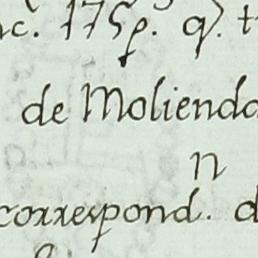 nc. 175p. q. t
de Moliendo
n
correspond. d